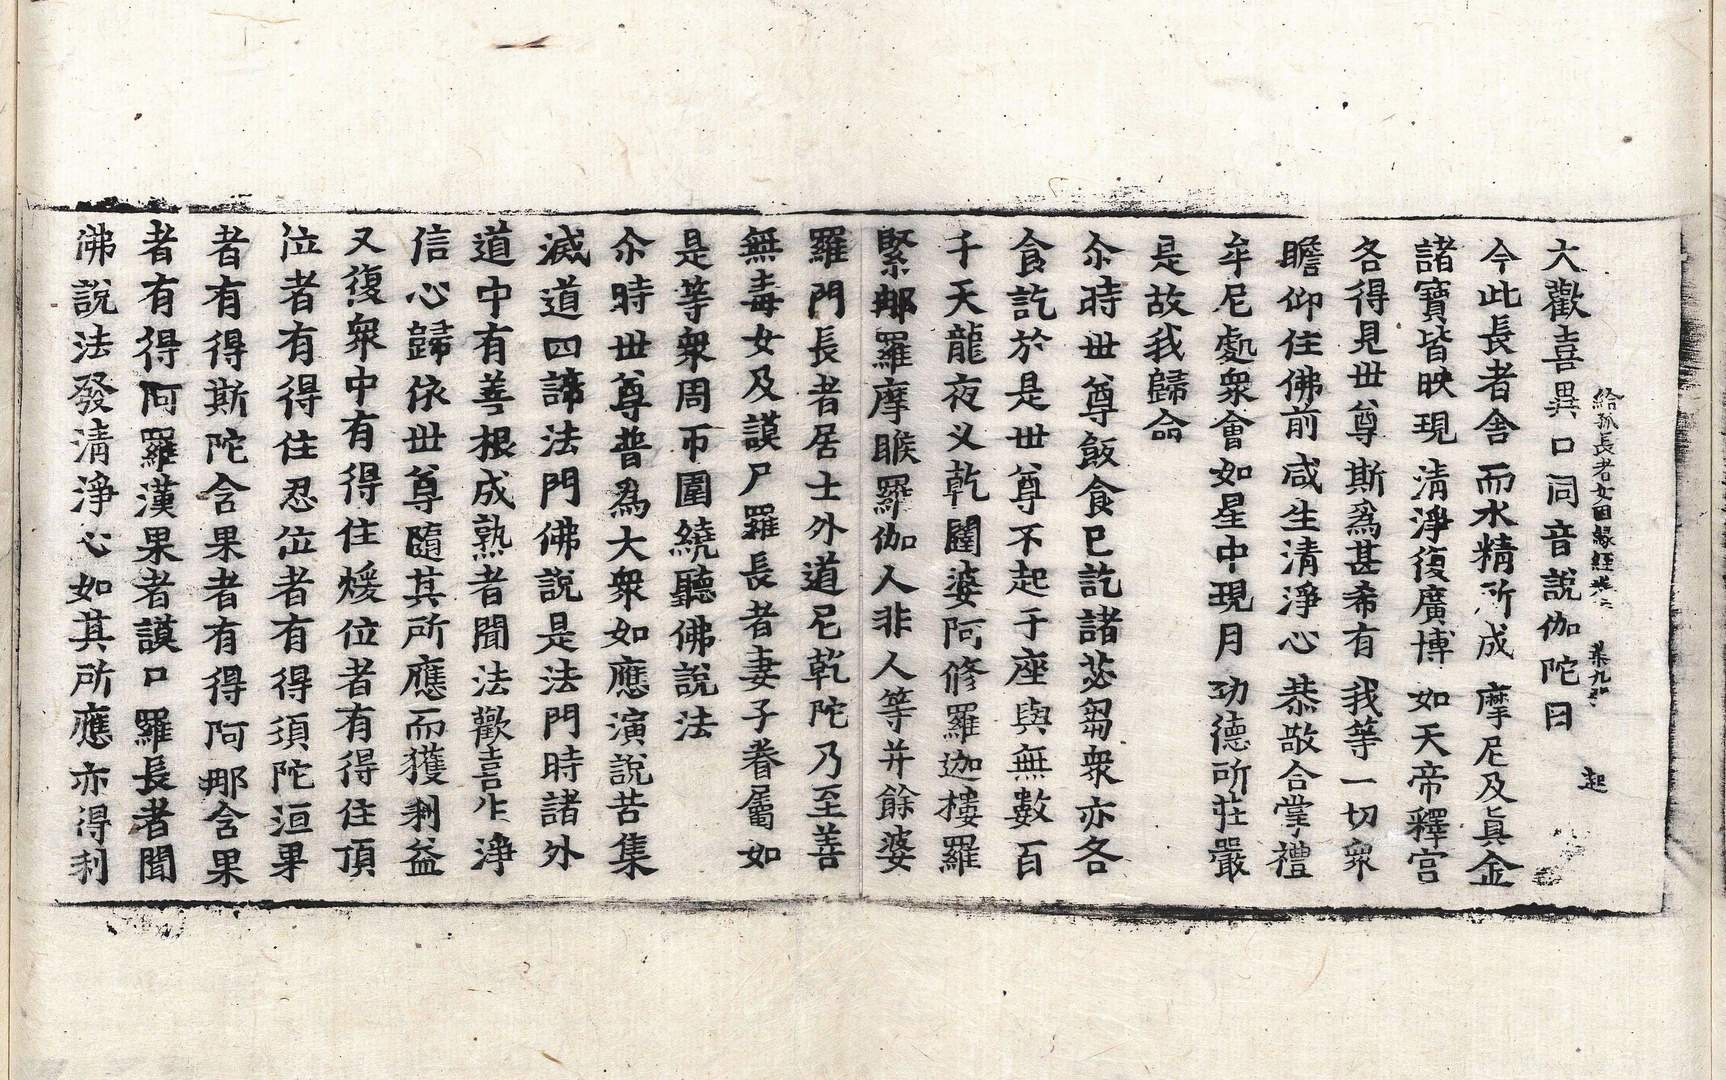 大歡喜異口同音說伽陀曰
給孤長者女因緣經卷六 第九張 起
今此長者舍而水精所成 摩尼及眞金
諸寶皆映現 清淨復廣博 如天帝釋宫
各得見世尊 斯爲甚希有 我等一切衆
瞻仰住佛前 咸生清淨心 恭敬合掌禮
牟尼處衆會 如星中現月 功德所莊嚴
是故我歸命
尒時世尊飯食已訖諸苾芻衆亦各
食訖於是世尊不起于座與無數百
千天龍夜叉乾闥婆阿修羅迦樓羅
緊那羅摩睺羅伽人非人等并餘婆
羅門長者居士外道尼乾陀乃至善
無毒女及謨尸羅長者妻子眷屬如
是等衆周帀圍繞聽佛說法
尒時世尊普爲大衆如應演說苦集
滅道四諦法門佛說是法門時諸外
道中有善根成熟者聞法歡喜生淨
信心歸依世尊隨其所應而獲利益
又復衆中有得住煖位者有得住頂
位者有得住忍位者有得須陀洹果
者有得斯陀含果者有得阿那含果
者有得阿羅漢果者謨尸羅長者聞
佛說法發清淨心如其所應亦得利